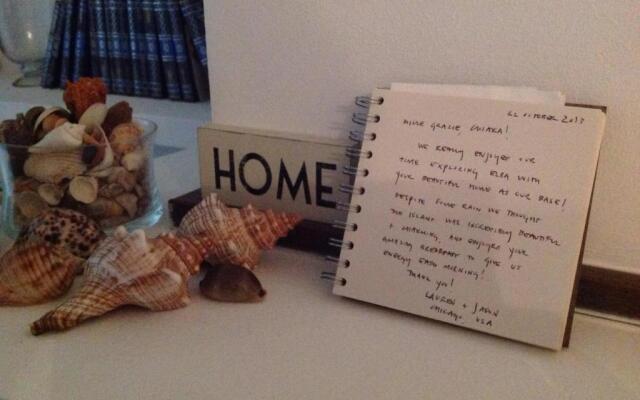 HOME
22 OCTOBER 2013
MILLE GRAZIE, CHIARA!
WE REALLY ENJOYED OUR
TIME EXPLORING ELBA WITH
YOUR BEAUTIFUL HOME AS OUR BASE!
DESPITE SOME RAIN WE THOUGHT
THE ISLAND WAS INCREDIBLY BEAUTIFUL
+ CHARMING, AND ENJOYED YOUR
AMAZING BREAKFAST TO GIVE US
ENERGY EACH MORNING!
THANK YOU!
LAUREN + JASON
CHICAGO, USA